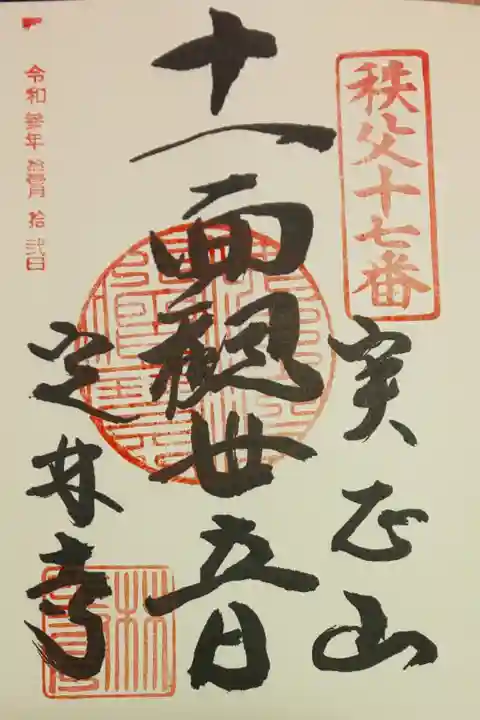 秩父十七番
実正山
十一面観世音
定林寺
令和参年拾壹月拾弐日
林寺